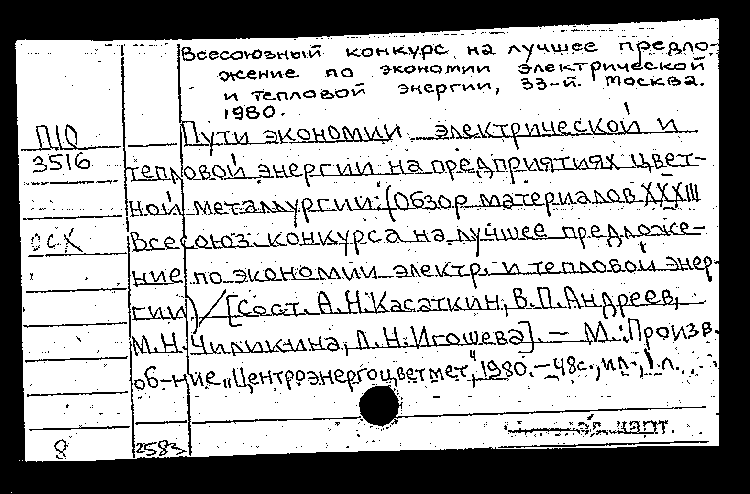 Всесоюзный конкурс на лучшее предло-
жение по экономии электрической
и тепловой энергии, 33-й. Москва.
1980.
П10
Пути экономии электрической и
3516
тепловой энергии на предприятиях цвет-
ной металлургии: (Обзор материалов XXXIII
ОСХ
Всесоюз. конкурса на лучшее предложе-
ние по экономии электр. и тепловой энер-
гии) / [Сост. А.Н.Касаткин, В.П.Андреев,
М.Н.Чиликина, Л.Н.Игошева]. — М.: Произв.
об-ние „Центроэнергоцветмет", 1980. — 48с., ил.,
карт.
8
2583